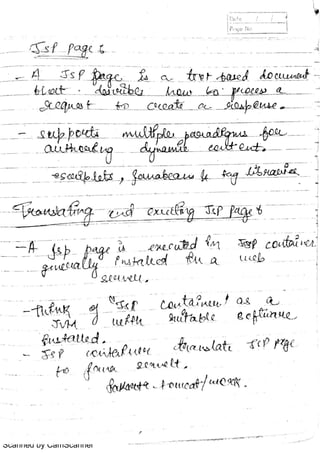 Date / /
Page No.
JSP page :
- A JSP page is a text based document
that describe how to process a
request to create a response.
- supports multiple paradigms for
authoring dynamic content.
scriplets, javabeans & tag libraries
Translating and executing JSP page :
- A jsp page is executed in JSP container
generally installed in a web
server.
- think of "JSP container" as a
JVM with suitable software
installed.
- JSP container translate JSP page
to java servlet.
tomcat/work.
Scanned by CamScanner